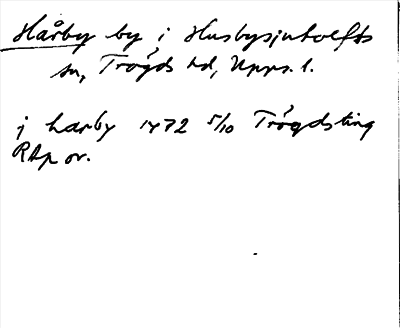 Hårby by, i Husbysjutolfts
sn, Trögds hd, Upps. l.
j harby 1472 5/10 Trögdsting
RAp or.